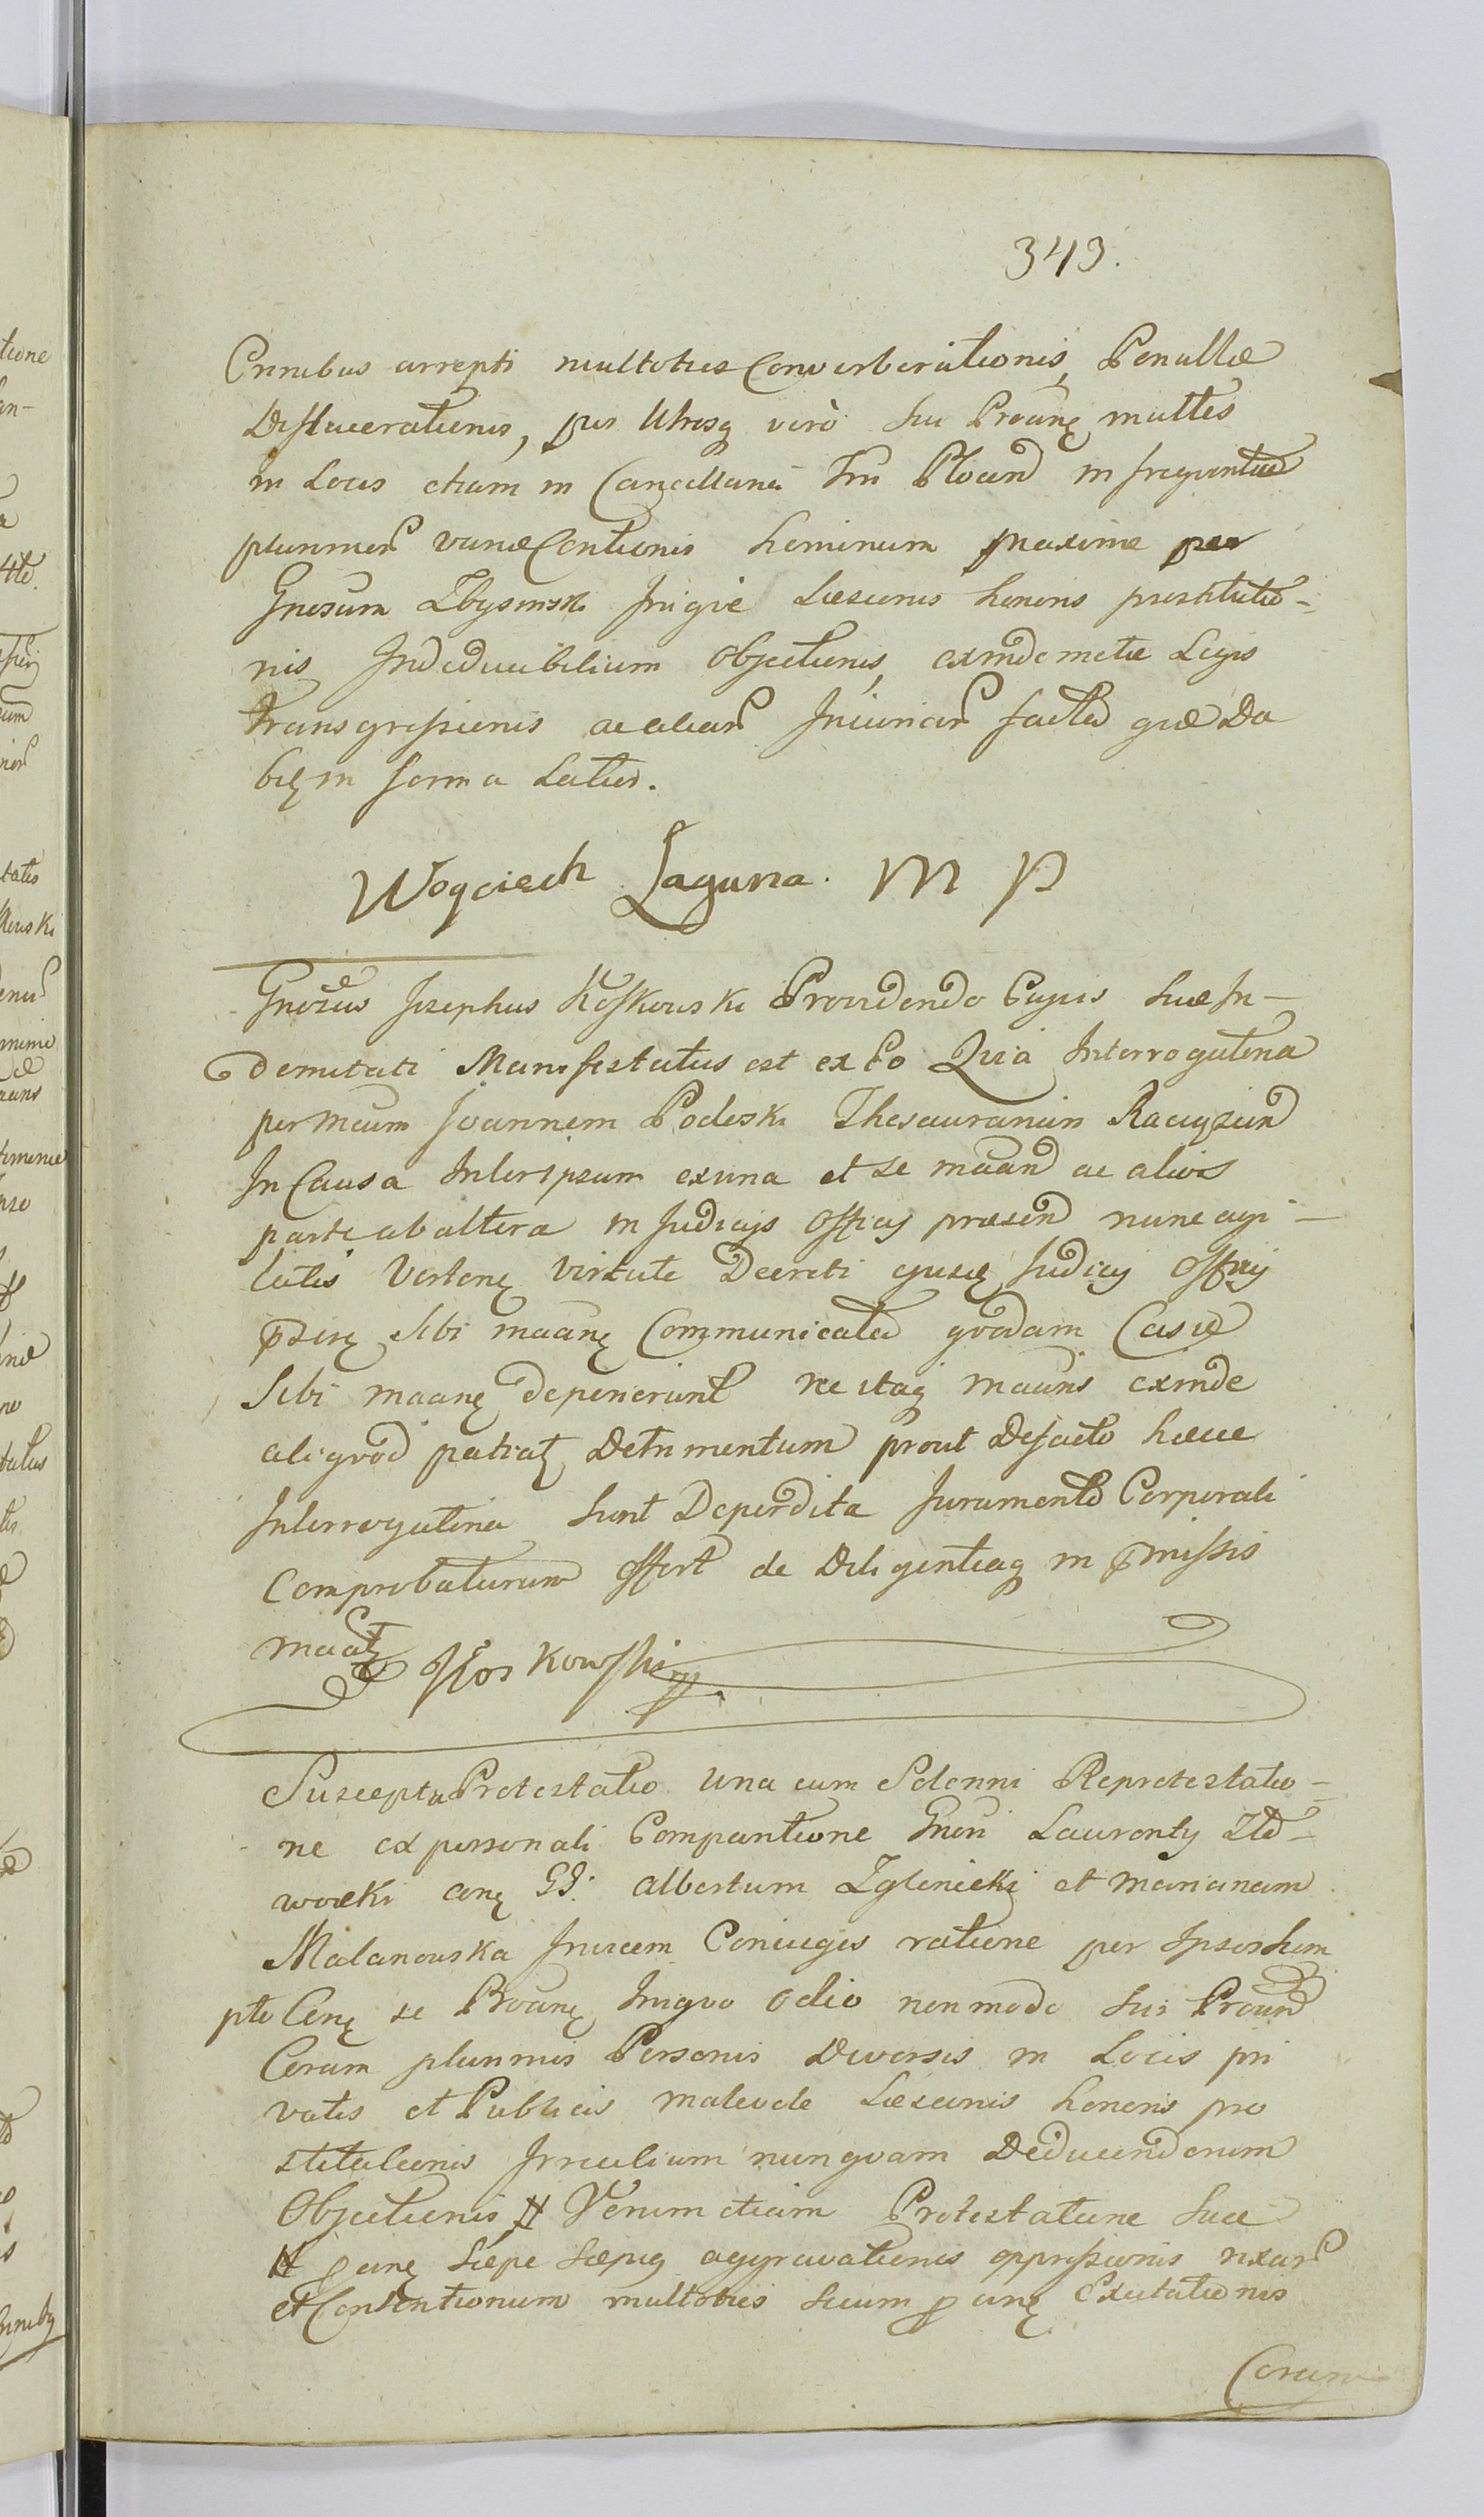 343.
Crinibus arrepti multoties Converberationis, Penulla
Dislacerationis, per Utrosq vero sui Proang multis
in Locis etiam in Cancellaria Trri Plocen in frequentia
plurimor varia Contionis hominum maxime per
Gnosum Zbysinski iniquie Laesionis honoris prostitutio-
nis Indeducibilium Objectionis, exinde metae Legis
transgressionis ac aliar Iniuriar facta quae Da
big in forma Latius.
Woyciech Laguna. M P
Gnosus Josephus Koskowski Providendo Cujus suae In-
demnitati Manifestatus est ex Eo Quia Interrogatoria
per Mcum Joannem Podoski Thesaurarium Raciązen
In Causa Inter ipsum ex una et se maan ac alios
parte ab altera in Judicijs Officij praesen nunc agi-
tatis Verteng virtute Decreti ejusq Judicij Officij
pseng sibi maang Communicata quadam Casu
Sibi maang deperierunt ne itaq maans exinde
aliquod patiatg Detrimentum prout Defacto haecce
Interrogatoria sunt Deperdita Juramento Corporali
Comprobaturum offert de Diligentiaq in pmissis
maatg Koskowski mp.
Suscepta Protestatio una cum Solenni Reprotestatio-
ne ex personali Comparitione Gnosi Laurenty Zło-
wocki cong GG. Albertum Zglenicki et Mariannam
Malanowska Invicem Coniuges ratione per Ipsos hum
pto Cong se Proang Iniquo odio non modo sui Proan
Coram plurimis Personis Diversis in Locis pri
vatis et Publicis malevole Laesionis honoris pro
stitutionis nunquam Deducendorum
Objectionis # Verum etiam Protestatione sua
# pang saepe saepiq aggravationis oppressionis rixar
et Contentionum multoties secum pang Excitationis
Coram